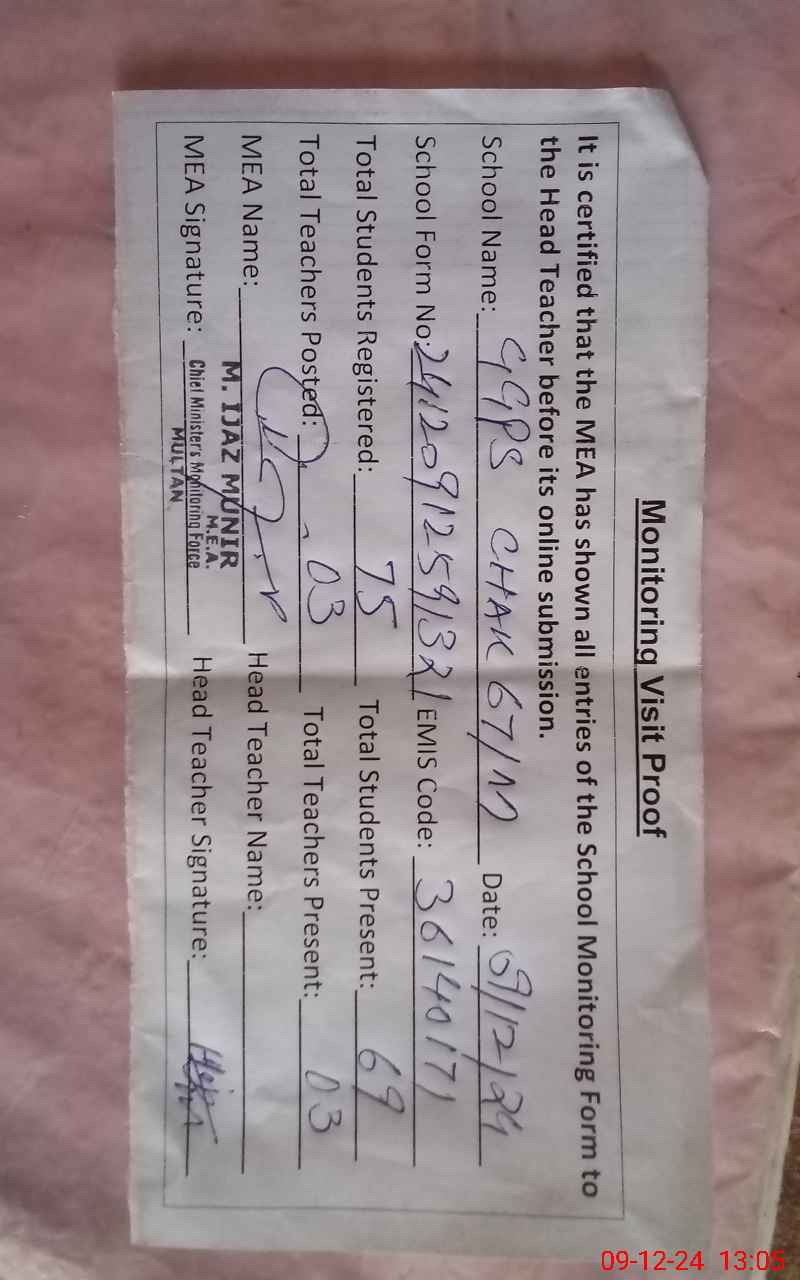 Monitoring Visit Proof
It is certified that the MEA has shown all entries of the School Monitoring Form to
the Head Teacher before its online submission.
School Name: GGPS CHAK 67/M Date: 09/12/24
School Form No: 24120912591321 EMIS Code: 36140171
Total Students Registered: 75 Total Students Present: 69
Total Teachers Posted: 03 Total Teachers Present: 03
MEA Name: Head Teacher Name:
M. IJAZ MUNIR
M.E.A.
MEA Signature: Chief Minister's Monitoring Force Head Teacher Signature:
MULTAN
09-12-24 13:05